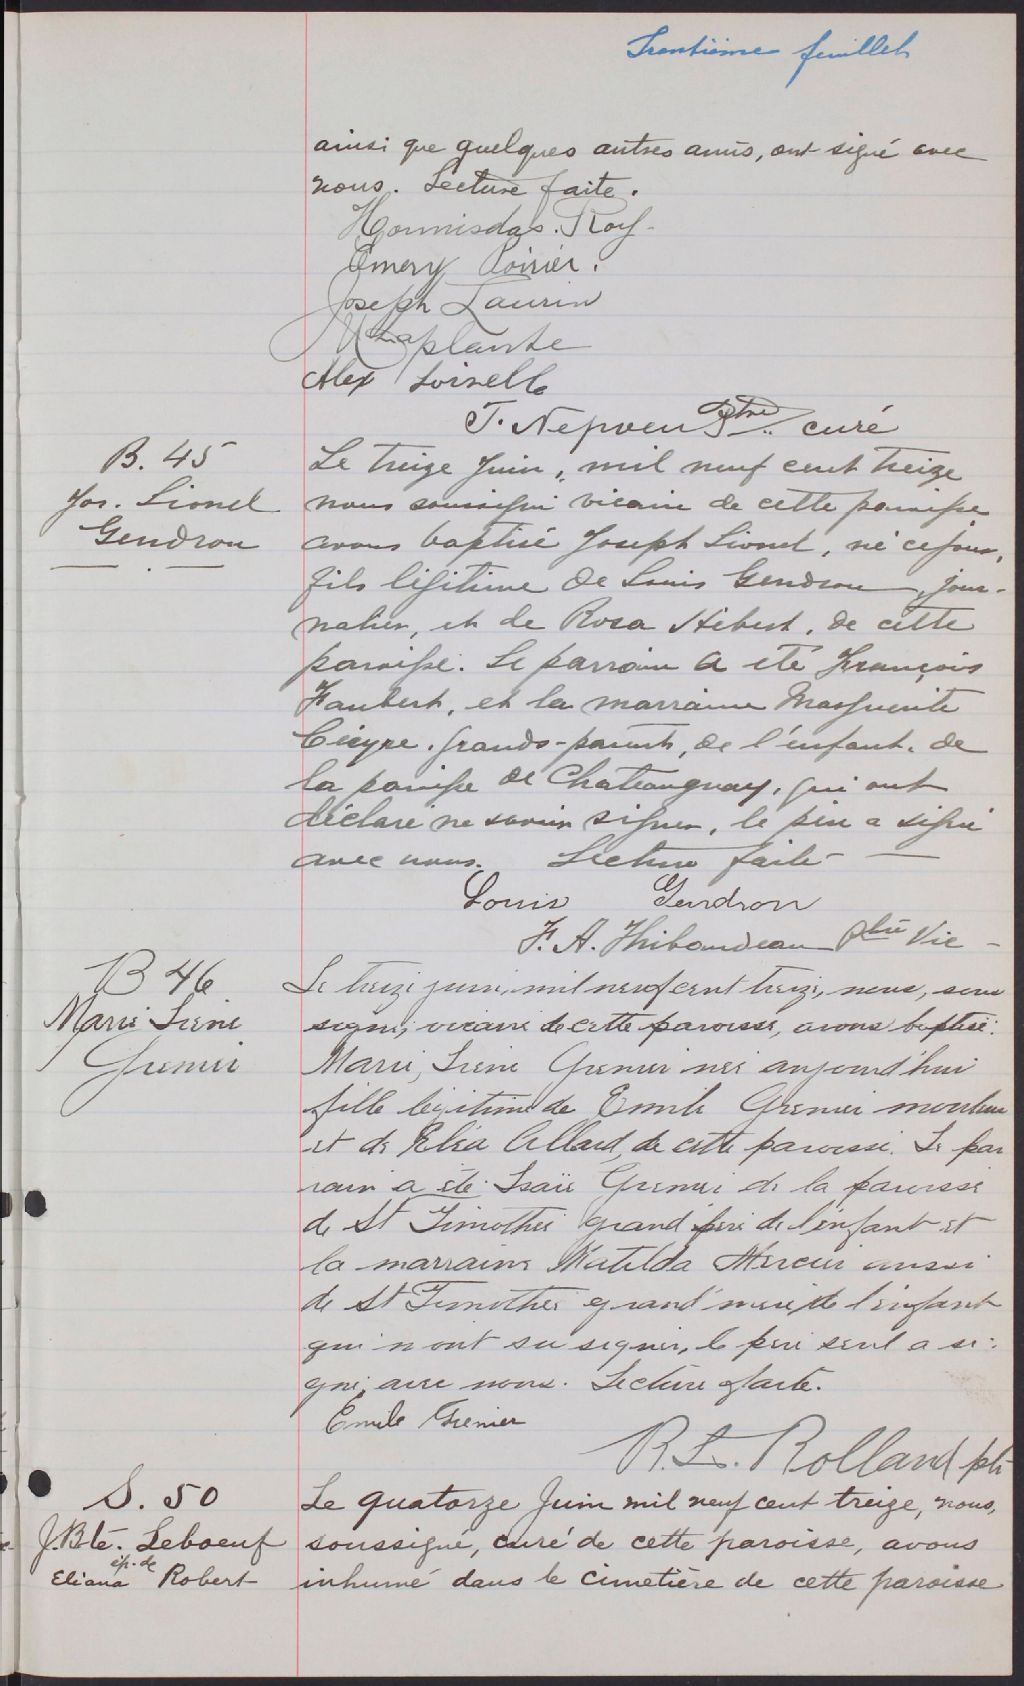 Trentième feuillet
ainsi que quelques autres amis, ont signé avec
nous. Lecture faite.
Hormisdas. Roy.
Emery Poirier.
Joseph Laurin
Laplante
Alex Loiselle
T. Nepveu Ptre. curé
B. 45
Jos. Lionel
Gendron
Le treize Juin, mil neuf cent treize
nous soussigné vicaire de cette paroisse
avons baptisé Joseph Lionel, né ce jour,
fils légitime de Louis Gendron, jour-
nalier, et de Rosa Hébert, de cette
paroisse. Le parrain a été François
Faubert, et la marraine Marguerite
grands-parents, de l'enfant. de
la paroisse de Chateauguay, qui ont
déclaré ne savoir signer, le père a signé
avec nous. Lecture faite —
Louis Gendron
F. A. Thibaudeau Ptre Vic -
B 46
Marie Irène
Grenier
Le treize juin, mil neuf cent treize, nous, sous
signé, vicaire de cette paroisse, avons baptisé:
Marie, Irène Grenier née aujourd'hui
fille légitime de Emile Grenier mouleur
et de Eléa Allard, de cette paroisse. Le par
rain a été Isaïe Grenier de la paroisse
de St Timothée grand père de l'enfant et
la marraine Matilda Mercier aussi
de St Timothée grand'mère de l'enfant
qui n'ont su signer, le père seul a si:
gné, avec nous. Lecture faite.
Emile Grenier
R. L. Rolland ptr
S. 50
J. Bte. Leboeuf
ép. de
Eliana Robert
Le quatorze Juin mil neuf cent treize, nous,
soussigné, curé de cette paroisse, avons
inhumé dans le cimetière de cette paroisse